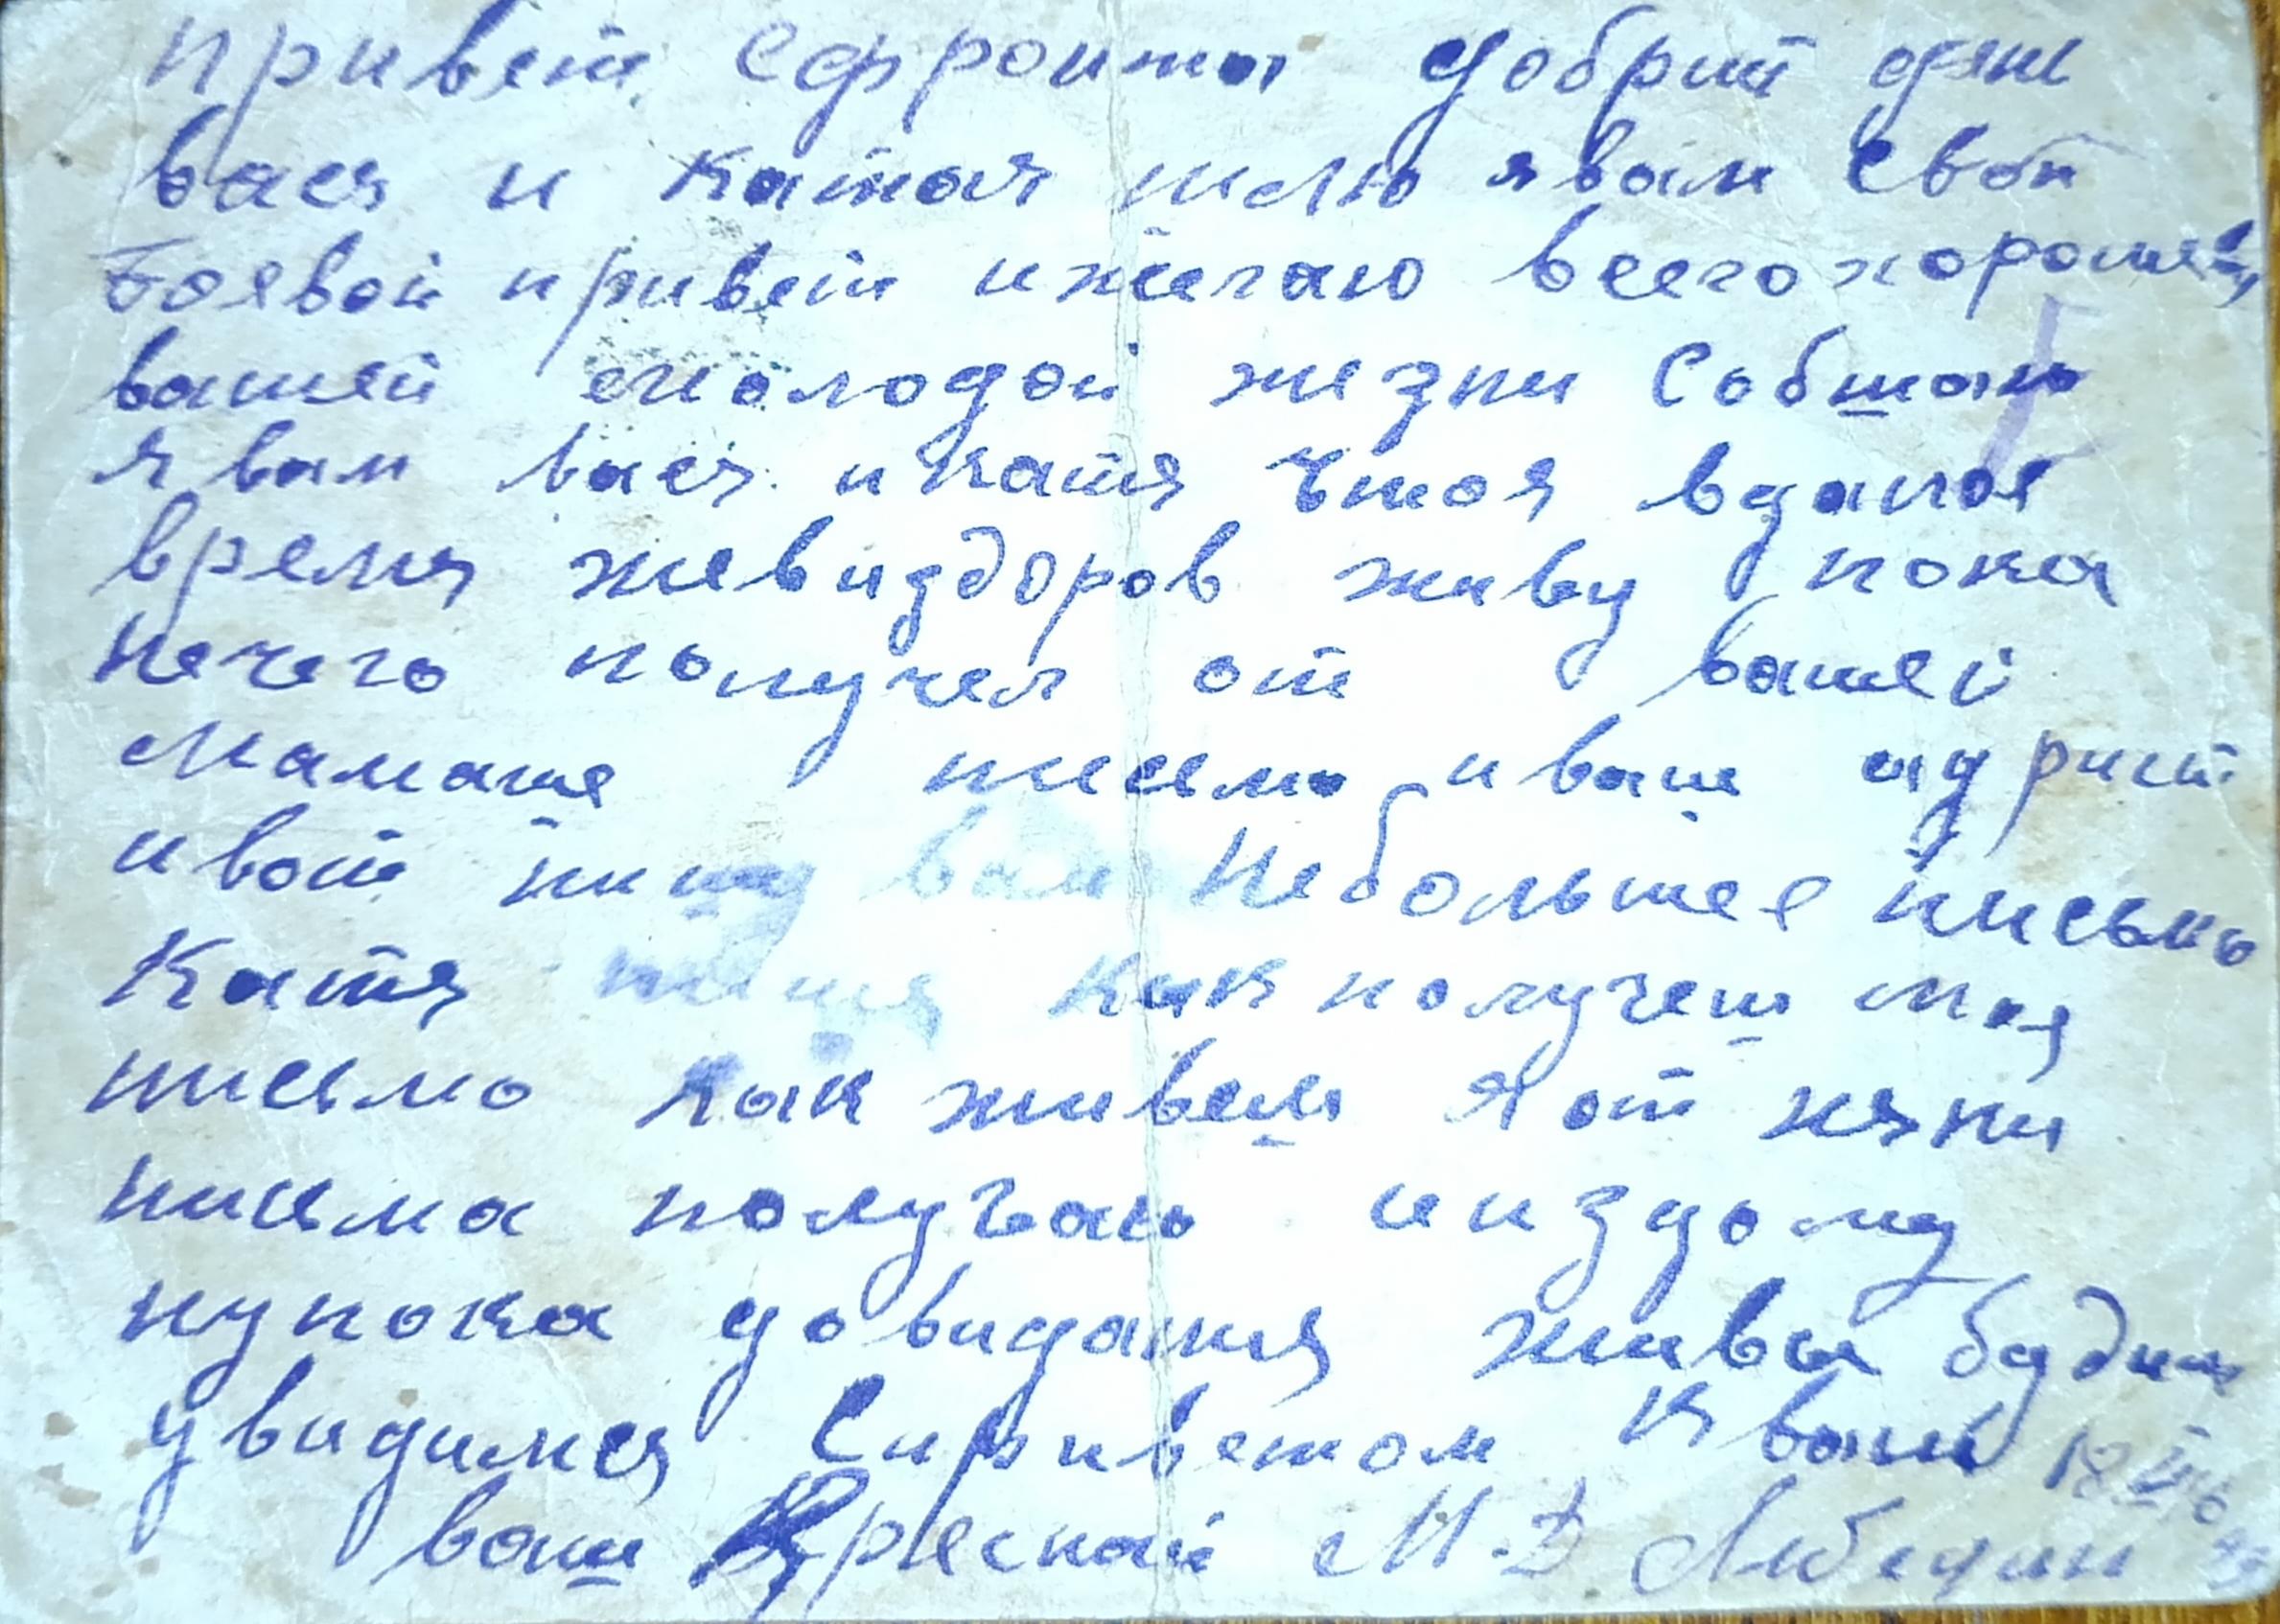 привет сфронта добрий дян
вася и катая шлю явам свой
Боевой привет ижелаю всегохорошева
вашей молодой жезни Собшаю
я вам вася икатя Чтоя вданоя
время жевиздоров живу пока
нечего получел от вашей
мамаше письмо иваш адрист
ивот пишу вам небольшее письмо
Катя пиши как получеш моя
письмо как живеш Я от няни
письма получаю ииздому
нупока довидания живы будим
увидимся Сприветом К вам
ваш Кресной М.Д Лебедин